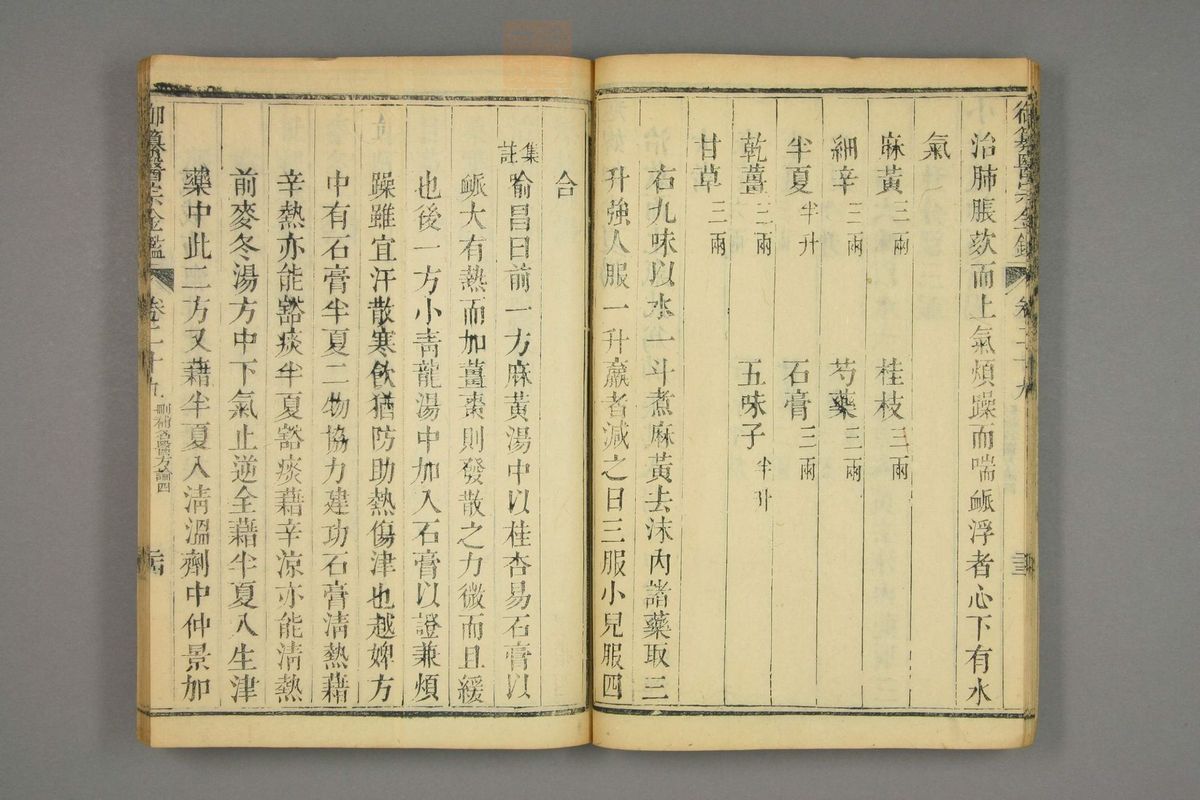 治肺脹欬而上氣煩躁而喘脈浮者心下有水
氣
麻黃三兩 桂枝三兩
細辛三兩 芍藥三兩
半夏半升 石膏三兩
乾薑三兩 五味子半升
甘草三兩
右九味以水一斗煮麻黃去沫內諸藥取三
升強人服一升羸者減之日三服小兒服四
合
集註喻昌曰前一方麻黃湯中以桂杏易石膏以
脈大有熱而加薑棗則發散之力微而且緩
也後一方小靑龍湯中加入石膏以證兼煩
躁雖宜汗散寒飮猶防助熱傷津也越婢方
中有石膏半夏二物協力建功石膏淸熱藉
辛熱亦能豁痰半夏豁痰藉辛涼亦能淸熱
前麥冬湯方中下氣止逆全藉半夏入生津
藥中此二方又藉半夏入淸溫劑中仲景加
御纂醫宗金鑑 卷二十九 刪補名醫方論四